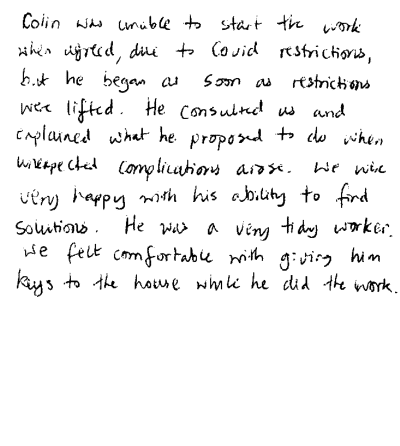 Colin was unable to start the work
when agreed, due to Covid restrictions,
but he began as soon as restrictions
were lifted. He consulted us and
explained what he proposed to do when
unexpected complications arose. We were
very happy with his ability to find
solutions. He was a very tidy worker.
We felt comfortable with giving him
keys to the house while he did the work.